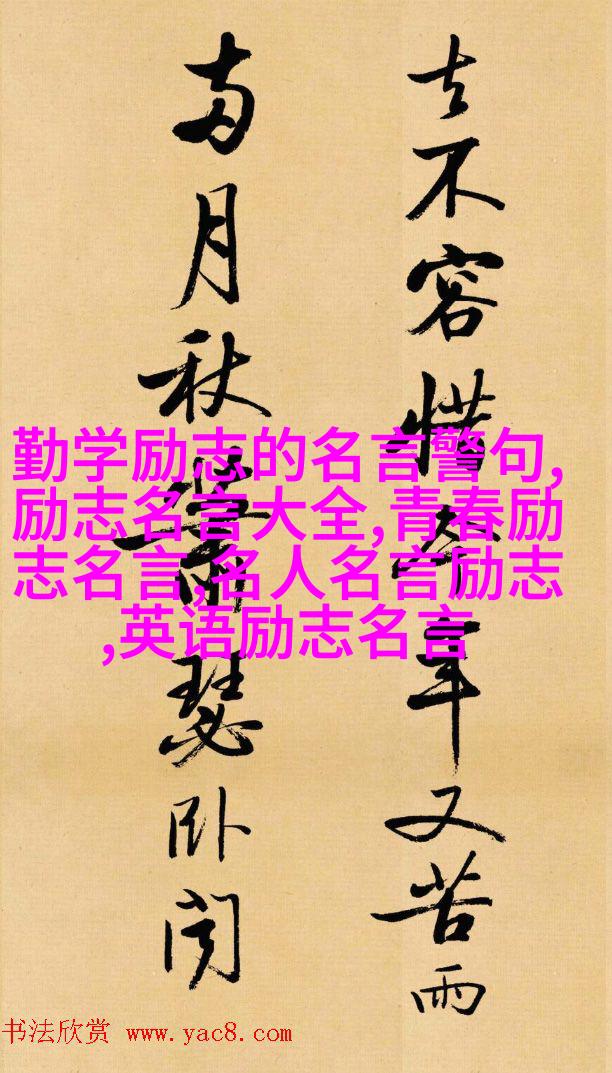 去不容惜今年又苦雨
兩月秋蕭瑟卧聞
勤学励志的名言警句,
励志名言大全,青春励
志名言,名人名言励志
,英语励志名言
书法欣赏 www.yac8.com